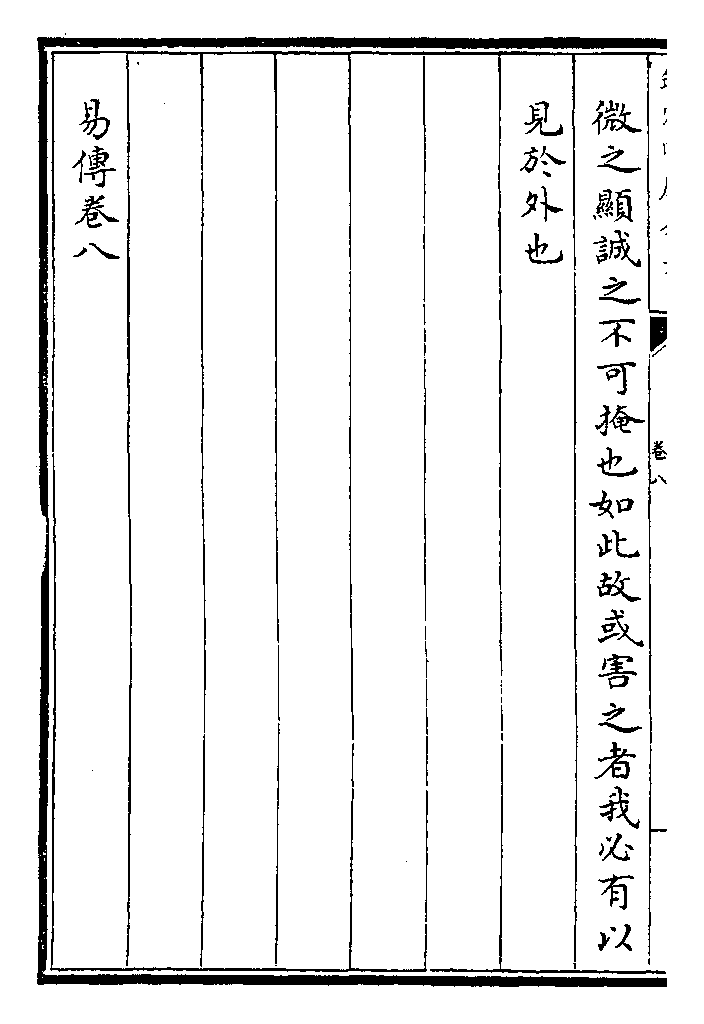 微之顯誠之不可掩也如此故或害之者我必有以
見於外也
易傳卷八
卷八